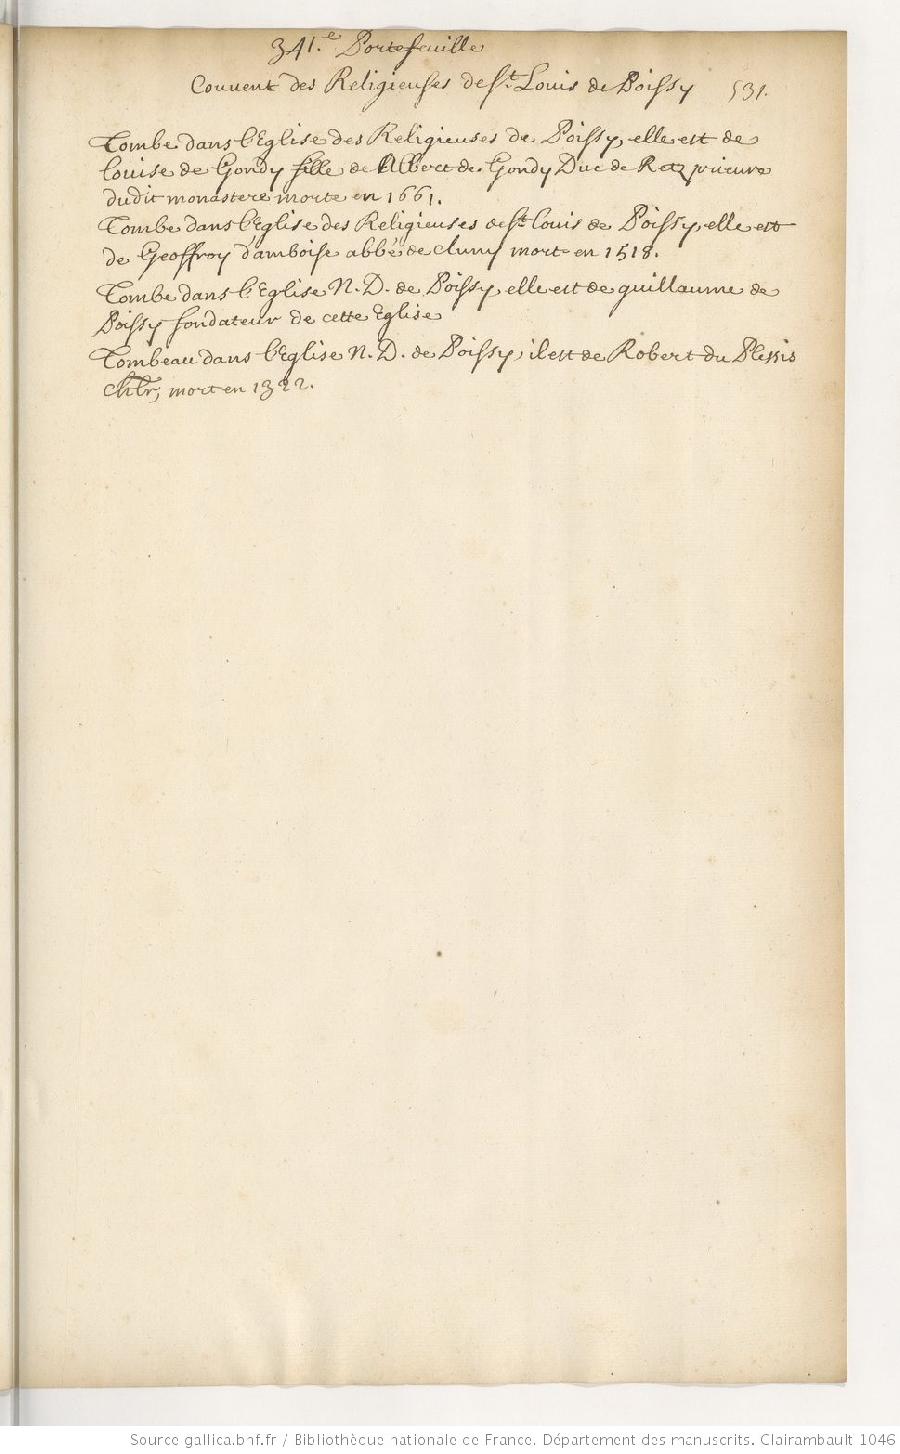 341.e Portefeuille
Couuent des Religieuses de St. Louis de Poissy 531.
Tombe dans l'Eglise des Religieuses de Poissy, elle est de
Louise de Gondy fille de Albert de Gondy Duc de Retz prieure
dudit monastere morte en 1661.
Tombe dans l'Eglise des Religieuses de St. Louis de Poissy, elle est
de Geoffroy d'amboise abbé de cluny mort en 1518.
Tombe dans l'Eglise N. D. de Poissy, elle est de guillaume de
Poissy fondateur de cette Eglise
Tombeau dans l'Eglise N. D. de Poissy, il est de Robert du Plessis
chlr, mort en 1322.
Source gallica.bnf.fr / Bibliothèque nationale de France. Département des manuscrits. Clairambault 1046